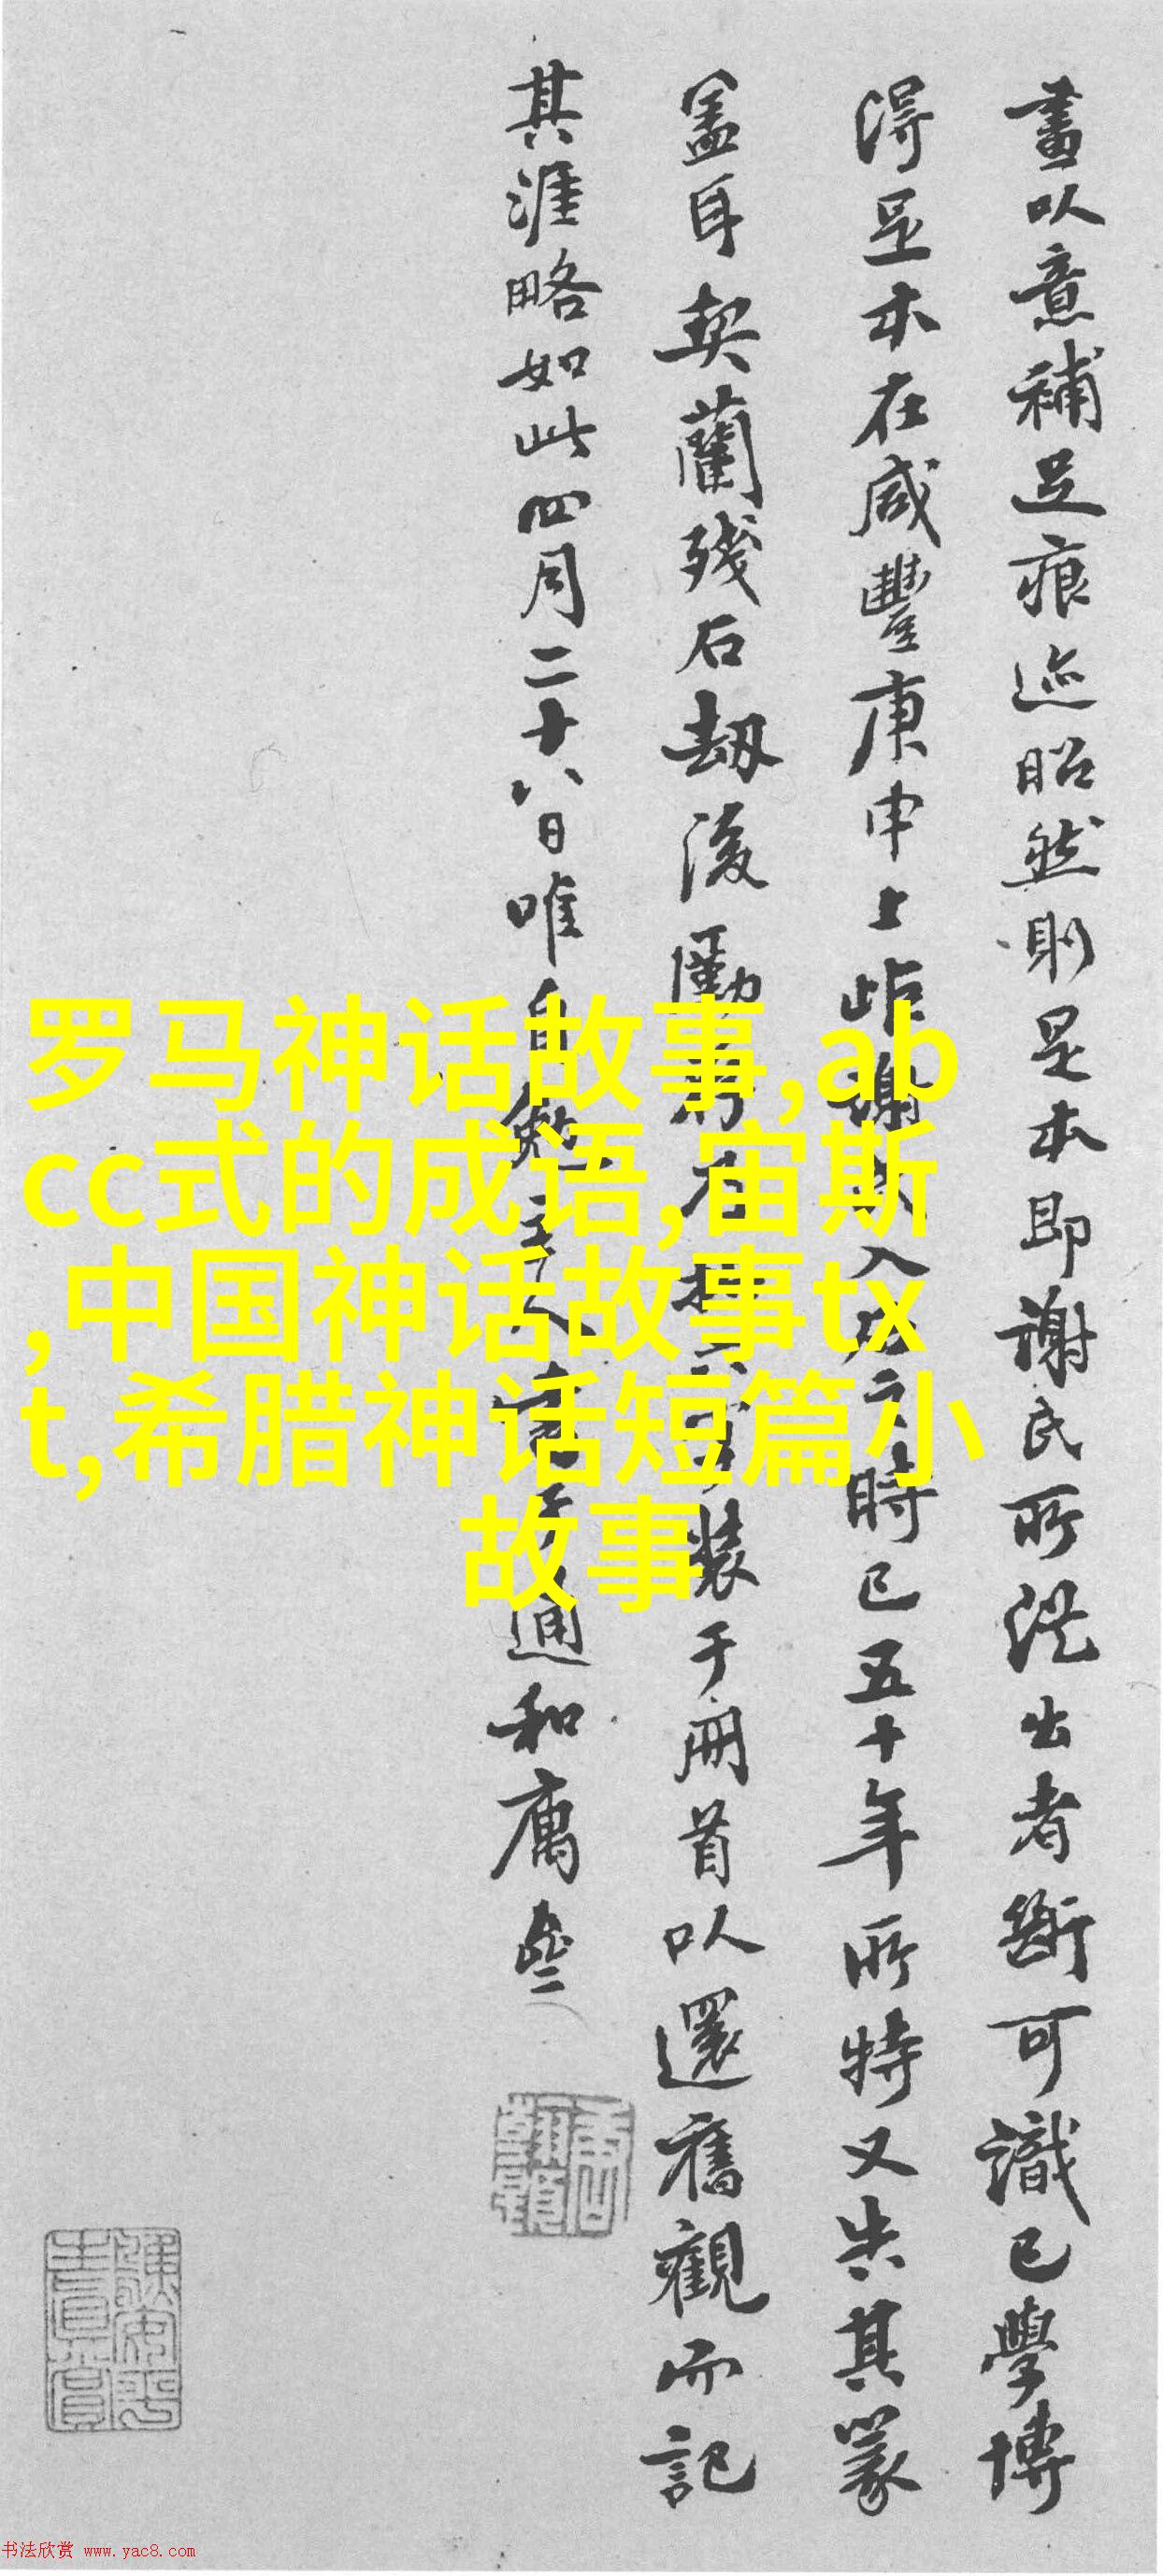 畫以意補足痕迹昭然則是本即謝氏所洗出者斷可識已學博
得足本在咸豐庚申上距謝入時已五十年所特又失其篆
蓋耳契蘭殘石劫後石裝于冊首以還舊觀而記
其涯略如此四月二十八日唯自勉通和
罗马神话故事,ab
cc式的成语,宙斯
,中国神话故事tx
t,希腊神话短篇小
故事
书法欣赏 www.yac8.com